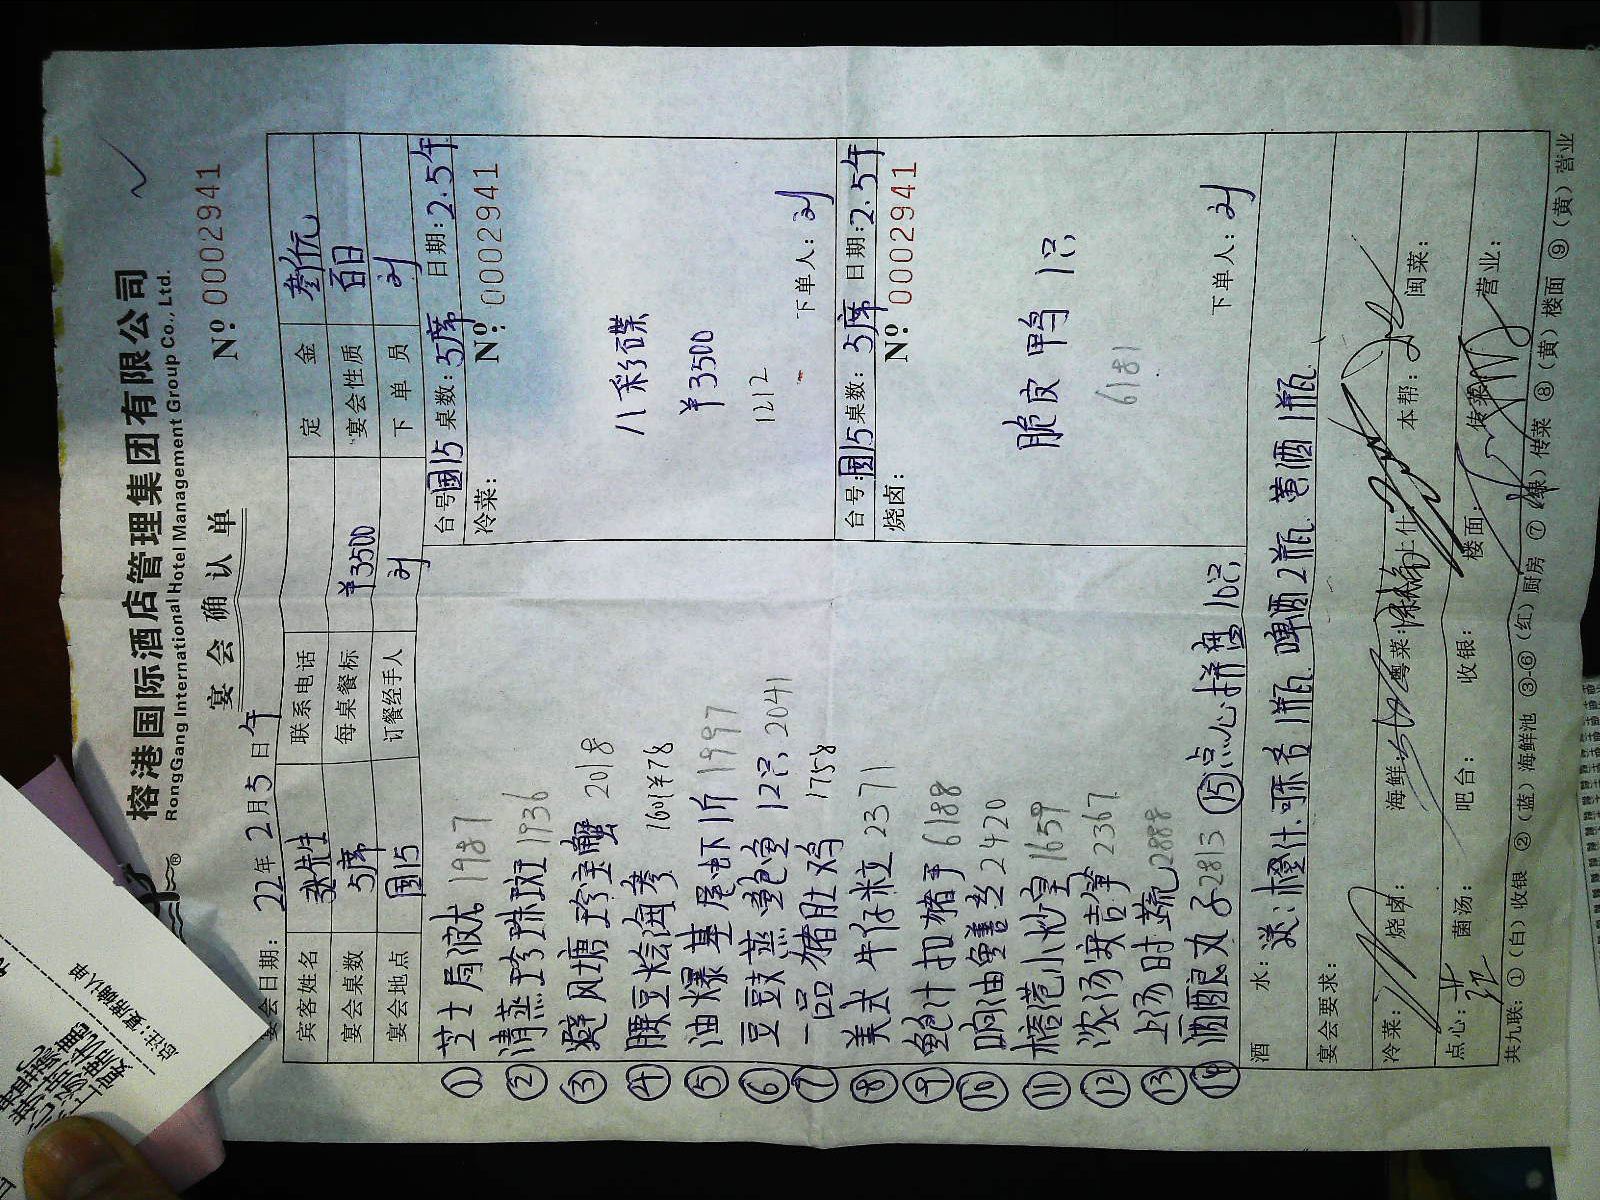 榕港国际酒店管理集团有限公司
RongGang International Hotel Management Group Co., Ltd.
宴会确认单
№ 0002941
宴会日期: 22年2月5日午
宾客姓名 张先生 联系电话 定金 叁仟元
宴会桌数 5席 每桌餐标 ¥3500 宴会性质 百日
宴会地点 国15 订餐经手人 刘 下单员 刘
① 芝士焗波龙 1987
② 清蒸珍珠斑 1936
③ 避风塘珍宝蟹 2018
④ 腰豆烩海参
⑤ 油爆基尾虾1斤 1997
⑥ 豆豉蒸鲍鱼12只 2041
⑦ 一品猪肚鸡 1758
⑧ 美式牛仔粒 2371
⑨ 鲍汁扣猪手 6188
⑩ 响油鳝丝 2420
⑪ 榕港小炒皇 1659
⑫ 浓汤安吉笋 2367
⑬ 上汤时蔬 2888
⑭ 酒酿丸子 2813
⑮ 点心拼盘10只
台号: 国15 桌数: 5席 日期: 2.5午
冷菜: № 0002941
八彩碟
¥3500
1212
下单人: 刘
台号: 国15 桌数: 5席 日期: 2.5午
烧卤: № 0002941
脆皮鸭1只
6181
下单人: 刘
酒水: 送:橙汁.可乐各1瓶. 啤酒2瓶. 黄酒1瓶
宴会要求:
冷菜: 烧卤: 海鲜: 粤菜: 上什: 本帮: 闽菜:
点心: 菌汤: 吧台: 收银: 楼面: 传菜: 营业:
共九联: ①(白)收银 ②(蓝)海鲜池 ③-⑥(红)厨房 ⑦(绿)传菜 ⑧(黄)楼面 ⑨(黄)营业
总注: 宴席确认单